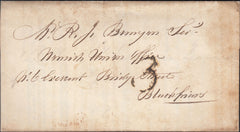 Mr R. J. Bunyon Secy
Norwich Union Office
No 6 Crescent Bridge Street
Blackfriars
3